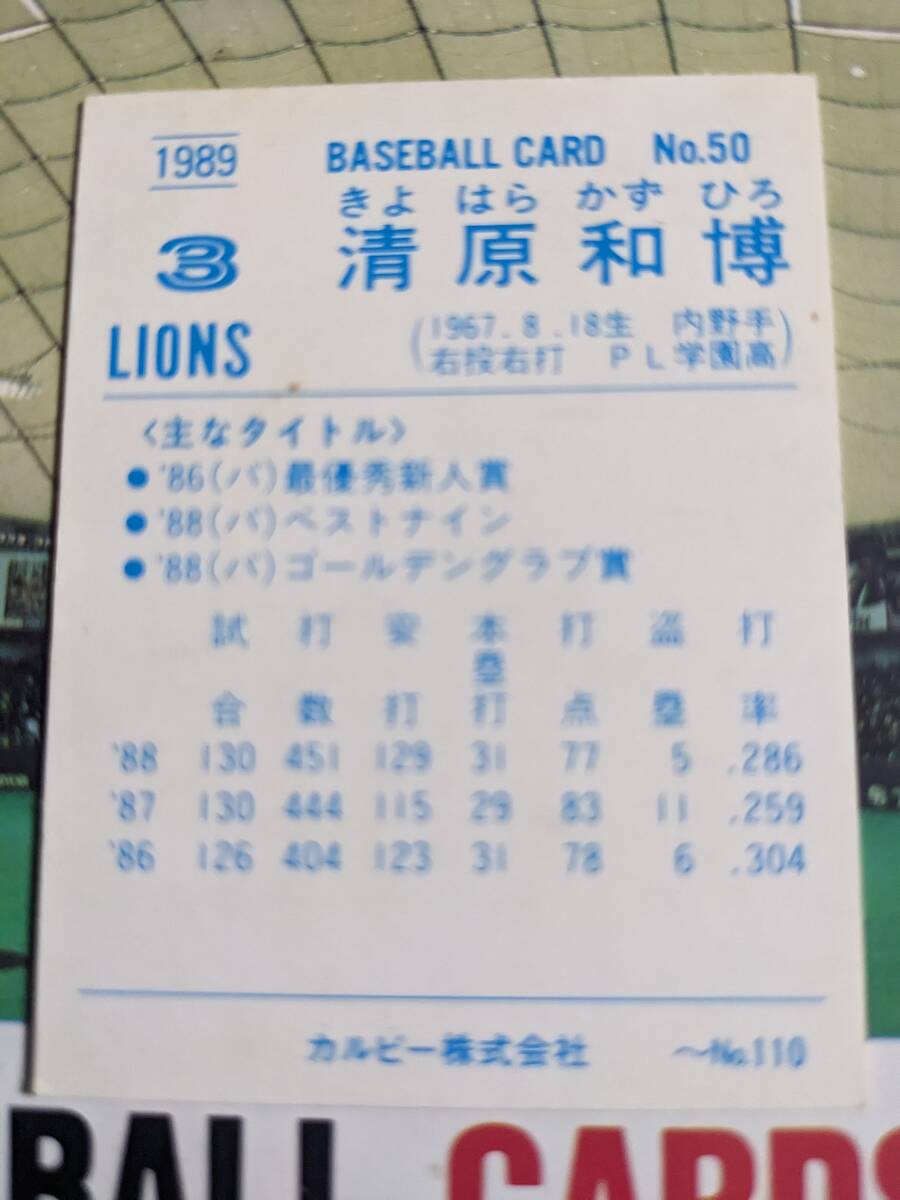 1989 BASEBALL CARD No.50
きよ はら かず ひろ
3 清原和博
LIONS (1967.8.18生 内野手
右投右打 PL学園高)
〈主なタイトル〉
●'86(パ)最優秀新人賞
●'88(パ)ベストナイン
●'88(パ)ゴールデングラブ賞
試合 打数 安打 本塁打 打点 盗塁 打率
'88 130 451 129 31 77 5 .286
'87 130 444 115 29 83 11 .259
'86 126 404 123 31 78 6 .304
カルビー株式会社 〜No.110
BALL CARDS